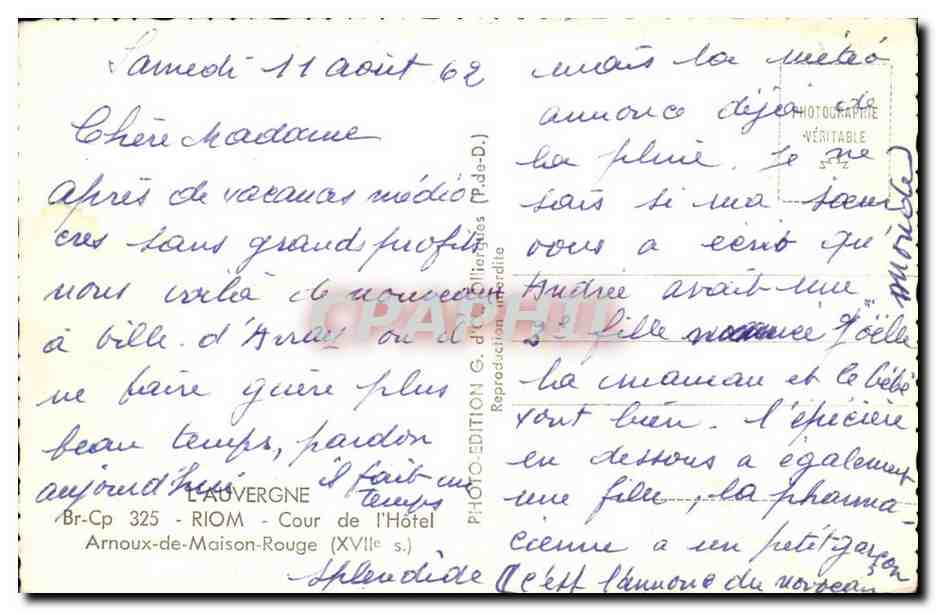 Samedi 11 août 62
Chère Madame
après de vacances médio
cres sans grands profits
nous voilà de nouveau
à Ville d'Avray où il
ne faire guère plus
beau temps, pardon
aujourd'hui il fait un
temps
splendide
mais la météo
annonce déjà de
la pluie. Je ne
sais si ma soeur
vous a écrit qu'
Andrée avait une
3e fille nommée Joëlle
la maman et le bébé
vont bien. l'épicière
en dessous a également
une fille, la pharma-
cienne a un petit garçon
(c'est l'annonce du nouveau
monde)
L'AUVERGNE
Br-Cp 325 - RIOM - Cour de l'Hôtel
Arnoux-de-Maison-Rouge (XVIIe s.)
PHOTO-EDITION G. d'O Olliergues (P.-de-D.)
Reproduction interdite
PHOTOGRAPHIE
VÉRITABLE
CPARAMA